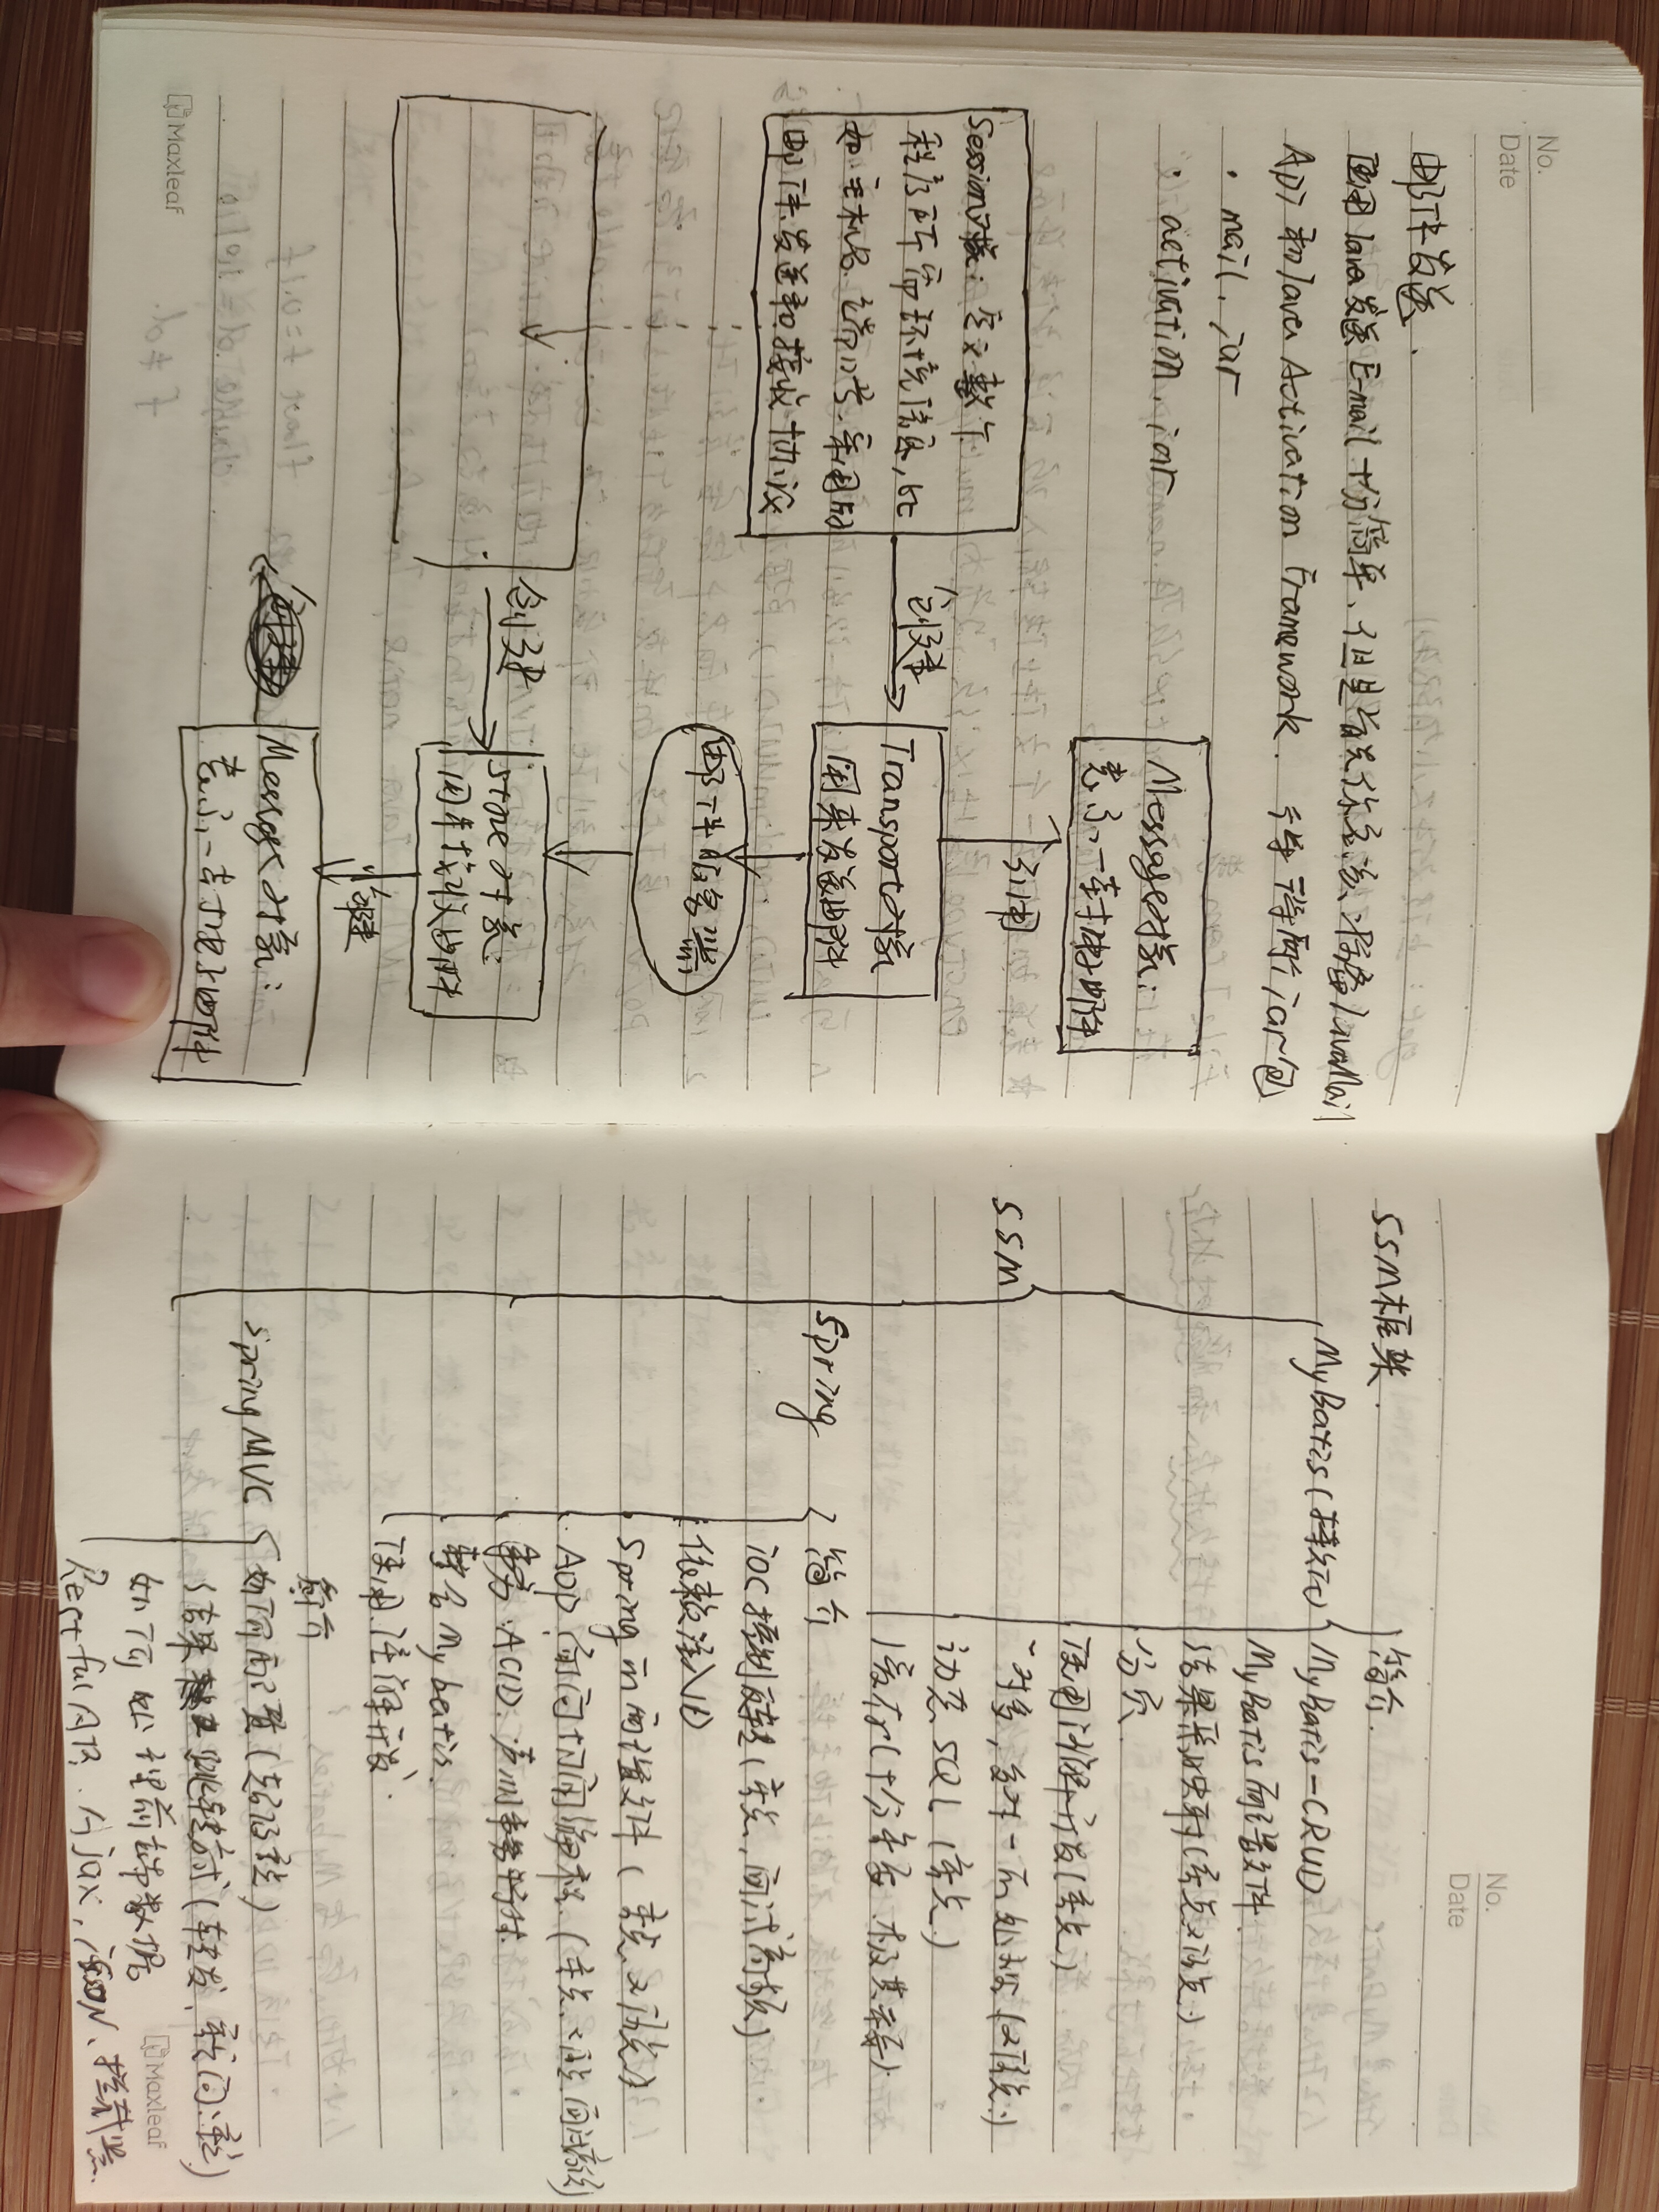 No.
Date
邮件发送.
使用Java发送E-mail十分简单,但是首先你应该准备JavaMail
API 和Java Activation Framework. 导得两个jar包
· mail.jar
· activation.jar
Message对象:
表示一封电子邮件
引用
Session对象: 定义整个
程序所需环境信息,比
如主机名.端口号.采用的
邮件发送和接收协议
创建
Transport对象
用来发送邮件
邮件服务器
创建
Store对象:
用来接收邮件
创建
Message对象:
表示一封电子邮件
Maxleaf
No.
Date
SSM框架.
SSM
MyBatis(持久化)
简介.
MyBatis-CRUD
MyBatis配置文件.
结果集映射(重点又难点)
分页.
使用注解开发(重点)
一对多,多对一的处理(又难点)
动态SQL(重点)
缓存(十分重要.极其重要)
Spring
简介
IOC控制反转(重点,面试高频)
依赖注入DI
Spring的配置文件(重点又难点)
AOP 面向切面编程(重点又难点 面试高频)
事务.ACID.
整合mybatis.
使用注解开发.
SpringMVC
简介
如何配置(走的路线)
结果跳转方式(转发,重定向)
如何处理前端数据
Restful风格.Ajax,JSON、拦截器.
Maxleaf